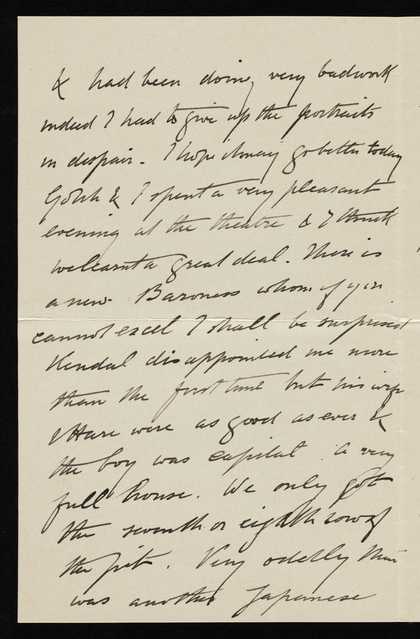 & had been doing very bad work
indeed I had to give up the portraits
in despair. I hope it may go better today
& I spent a very pleasant
evening at the theatre & I think
we learnt a great deal. There is
a new Baroness whom if you
cannot excel I shall be surprised
Kendal disappointed me more
than the first time but his wife
& Hare were as good as ever &
the boy was capital. A very
full house. We only got
the seventh or eighth row of
the pit. Very oddly there
was another Japanese